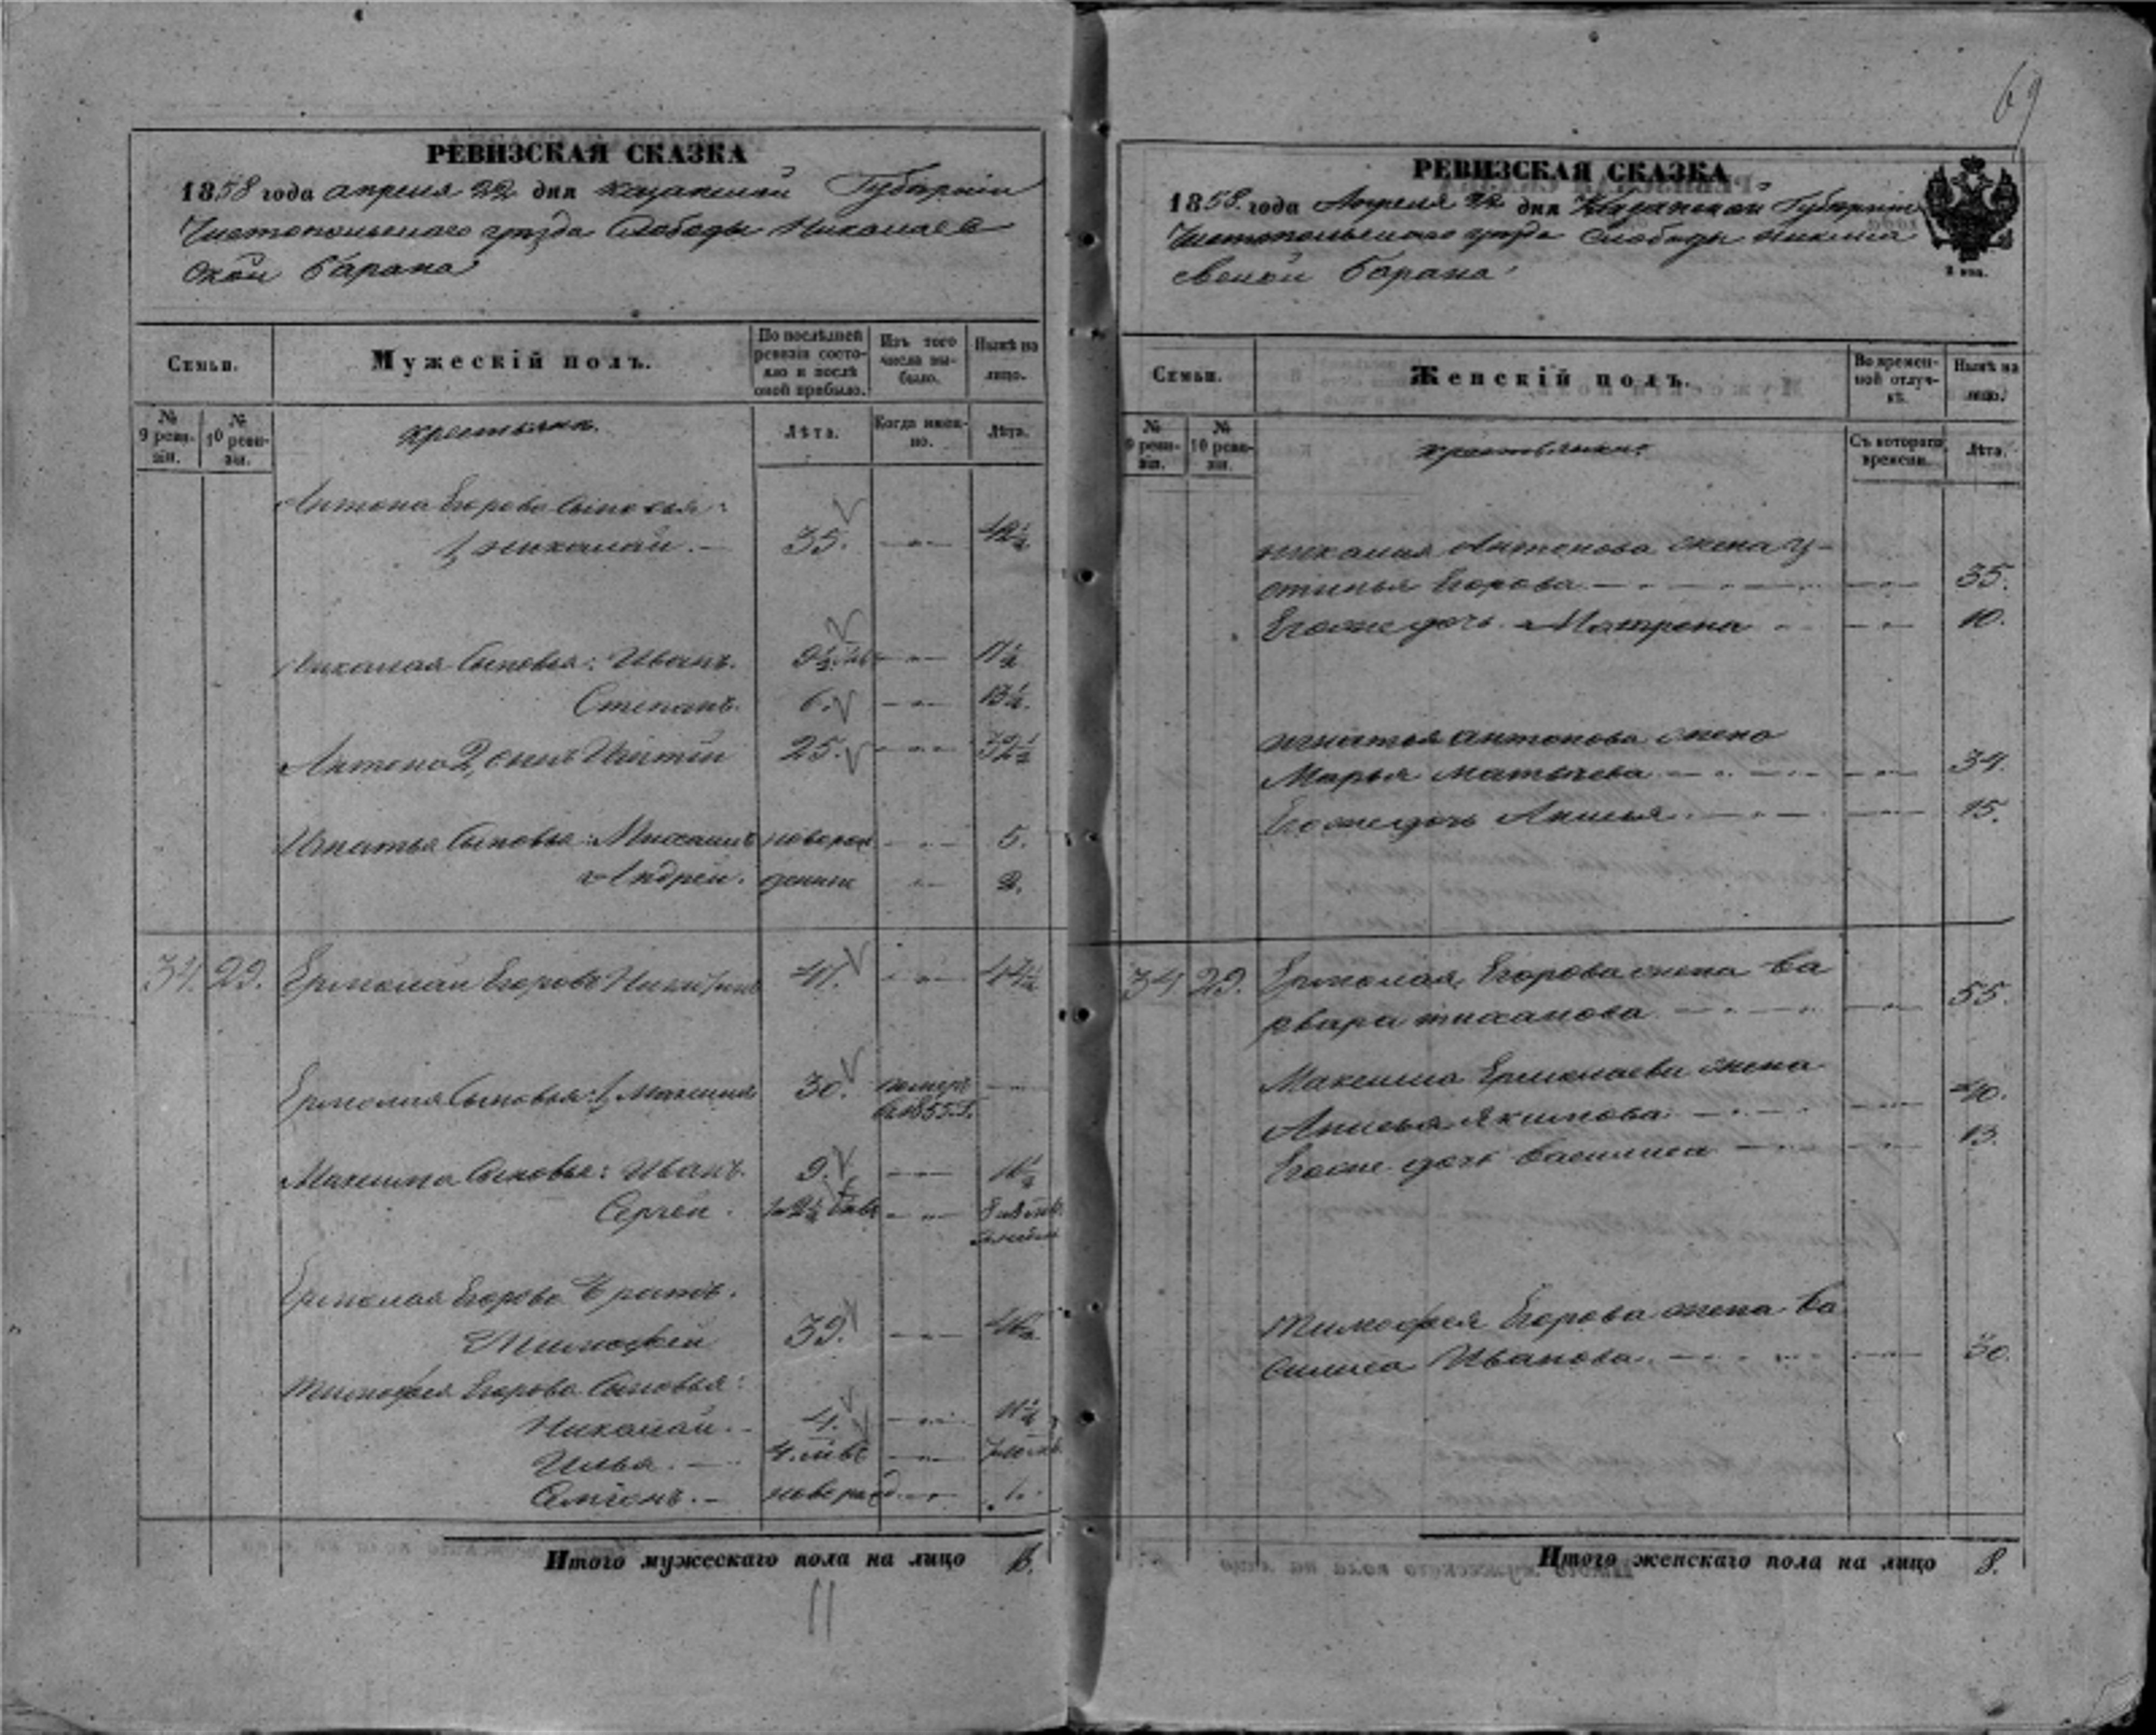 69
РЕВИЗСКАЯ СКАЗКА
1858 года апреля 22 дня Казанской Губернии
Чистопольскаго уезда Слободы Николаев
ской Барана
Семьи.
Мужескій полъ.
По послѣдней ревизіи состояло и послѣ оной прибыло.
Изъ того числа выбыло.
Нынѣ на лицо.
№ 9 ревизіи.
№ 10 ревизіи.
Крестьяне.
Лѣта.
Когда именно.
Лѣта.
Антона Егорова сыновья:
1, Николай. 35. 42½
Николая Сыновья: Иванъ. 17½
Степанъ. 6. 13½.
Антона 2, сынъ Игнатій 25. 32½
Игнатья Сыновья: Михаилъ новорож 5.
Андрей. денные 2.
34. 29. Ермолай Егоровъ Никитинъ 41.
Ермолая Сыновья: 1, Максимъ 30. померъ
в 1855 г.
Максима Сыновья: Иванъ. 9. 16½
Сергей.
Ермолая Егорова братъ.
Тимофей 39. 46½
Тимофея Егорова Сыновья:
Николай. 4. 11½
Илья.
Семёнъ. новорожд. 1.
Итого мужескаго пола на лицо
11
РЕВИЗСКАЯ СКАЗКА
1858 года Апреля 22 дня Казанской Губернии
Чистопольскаго уезда Слободы Никола
евской Барана
Семьи.
Женскій полъ.
Во временной отлучкѣ.
Нынѣ на лицо.
№ 9 ревизіи.
№ 10 ревизіи.
Крестьянки.
Съ котораго времени.
Лѣта.
Николая Антонова жена У-
стинья Егорова 35.
Егоже дочь Матрена 10.
Игнатья Антонова жена
Марья Матвеева 34.
Егоже дочь Анисья 15.
34 29. Ермолая Егорова жена Ва
рвара Тиханова 55.
Максима Ермолаева жена
Анисья Якимова 40.
Егоже дочь Василиса 13.
Тимофея Егорова жена Ва
силиса Иванова 30.
Итого женскаго пола на лицо 8.